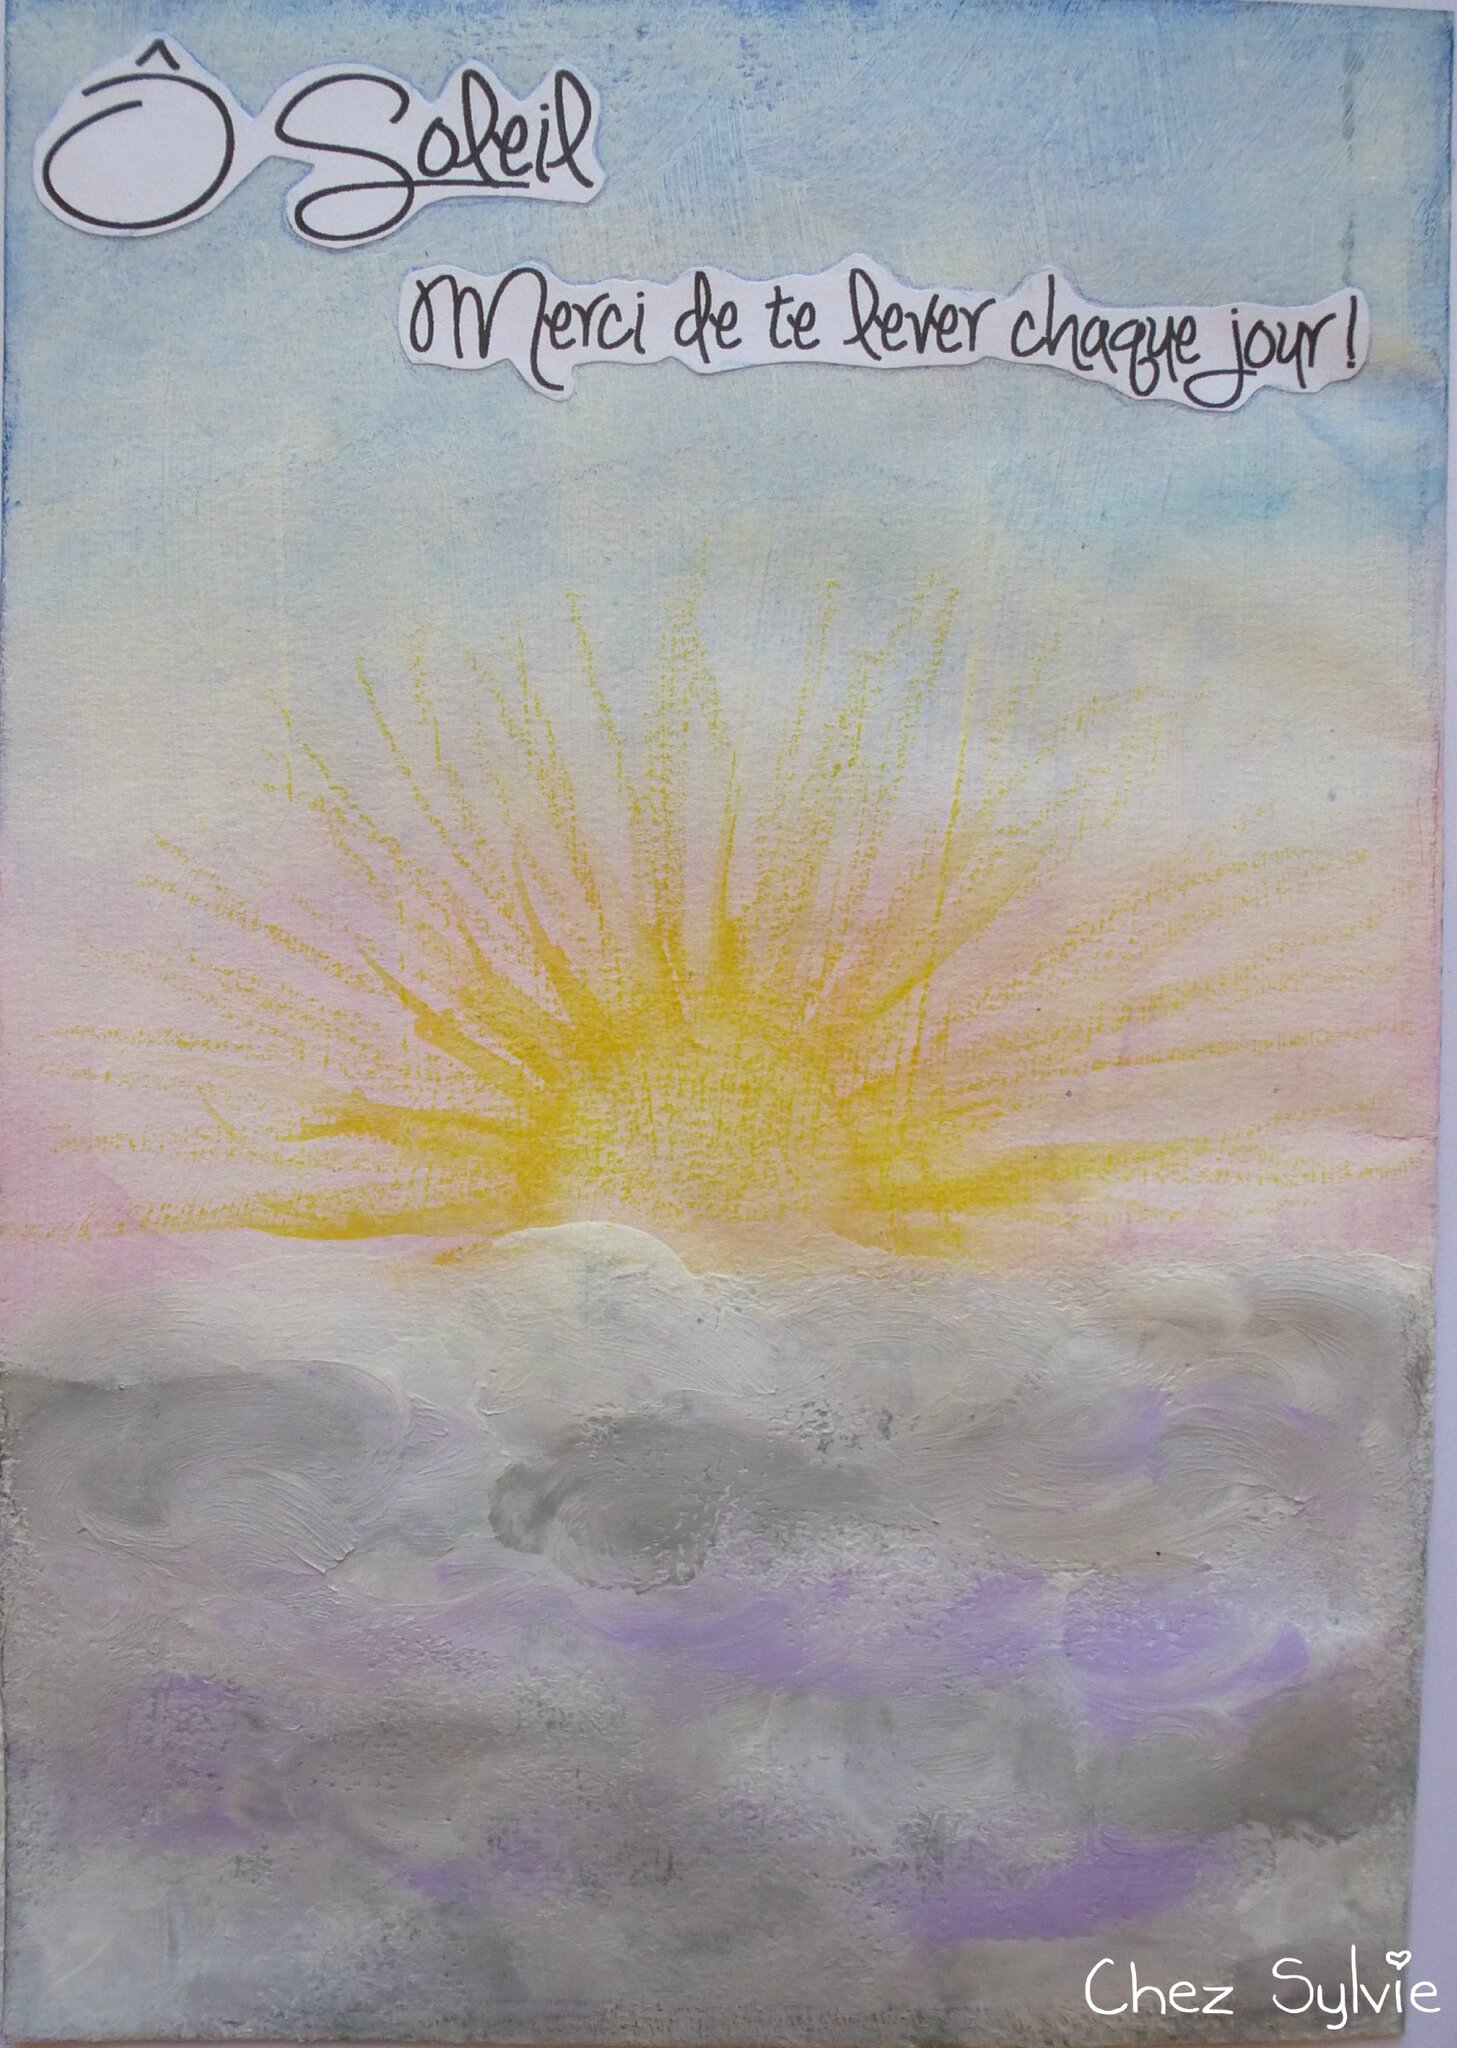 Ô Soleil
Merci de te lever chaque jour!
Chez Sylvie